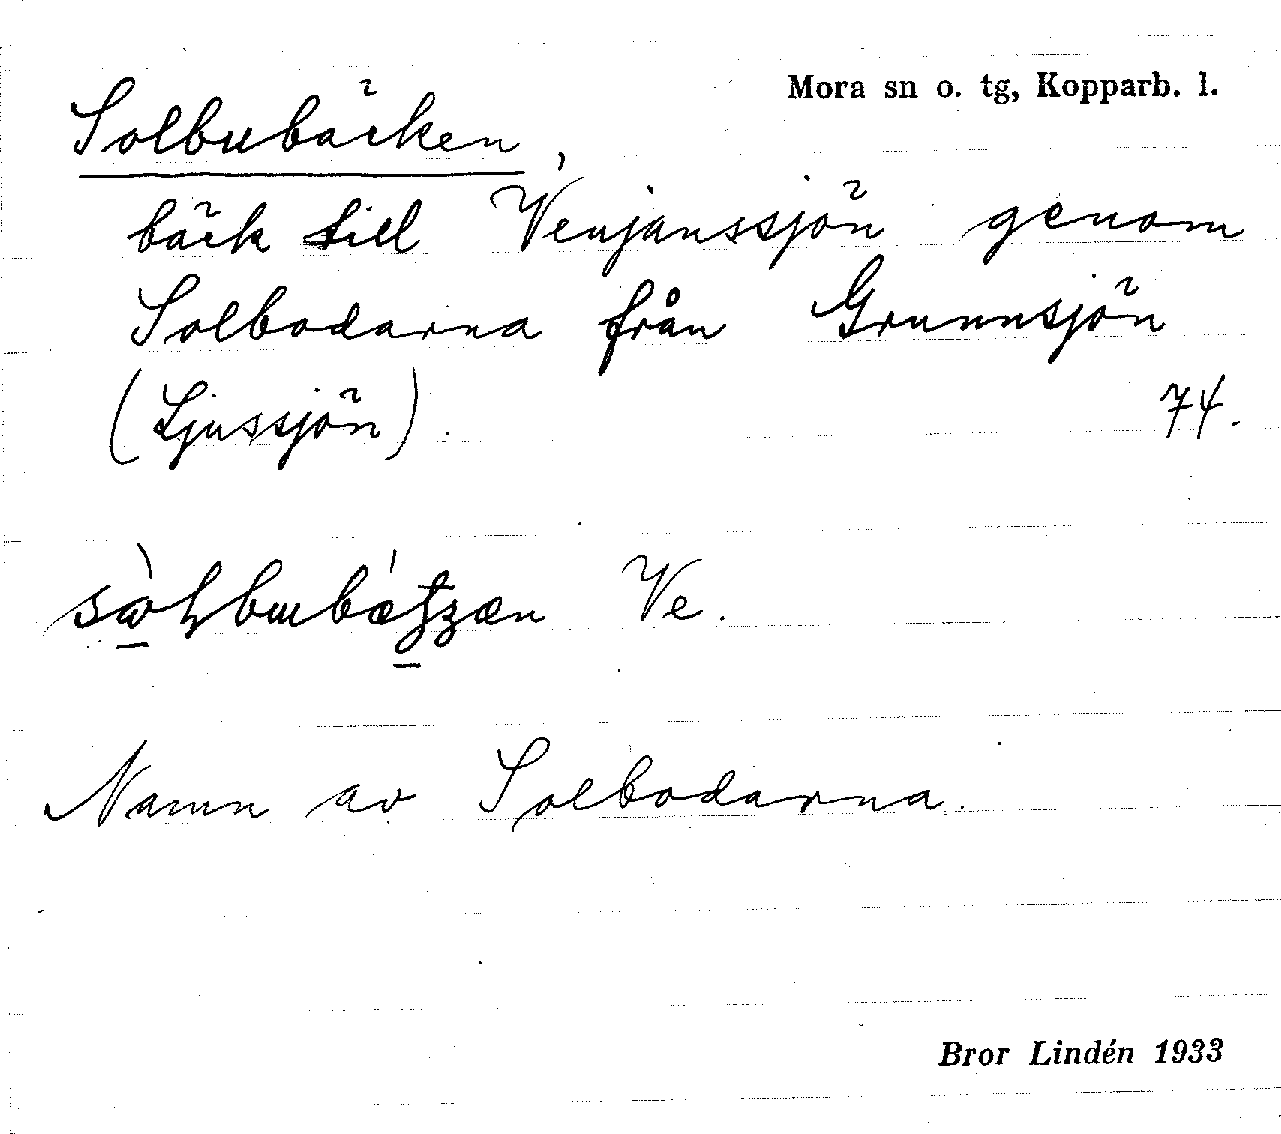 Mora sn o. tg, Kopparb. l.
Solbubäcken,
bäck till Venjanssjön genom
Solbodarna från Grunnsjön
(Ljussjön). 74.
Ve.
Namn av Solbodarna.
Bror Lindén 1933